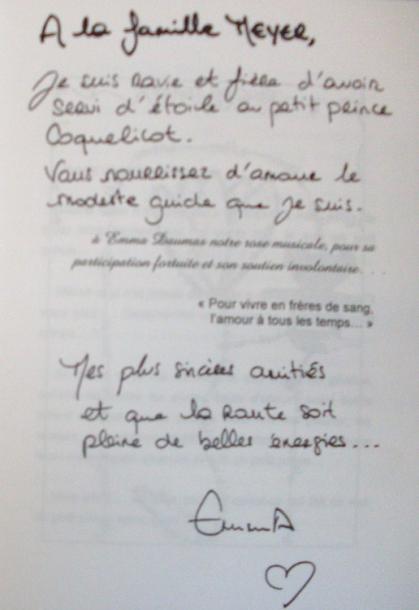 A la famille MEYER,
Je suis ravie et fière d'avoir
servi d'étoile au petit prince
Coquelicot.
Vous nourrissez d'amour le
modeste guide que je suis.
à Emma Daumas notre rose musicale, pour sa
participation fortuite et son soutien involontaire. . .
« Pour vivre en frères de sang,
l'amour à tous les temps... »
Mes plus sincères amitiés
et que la Route soit
pleine de belles énergies...
EmmA